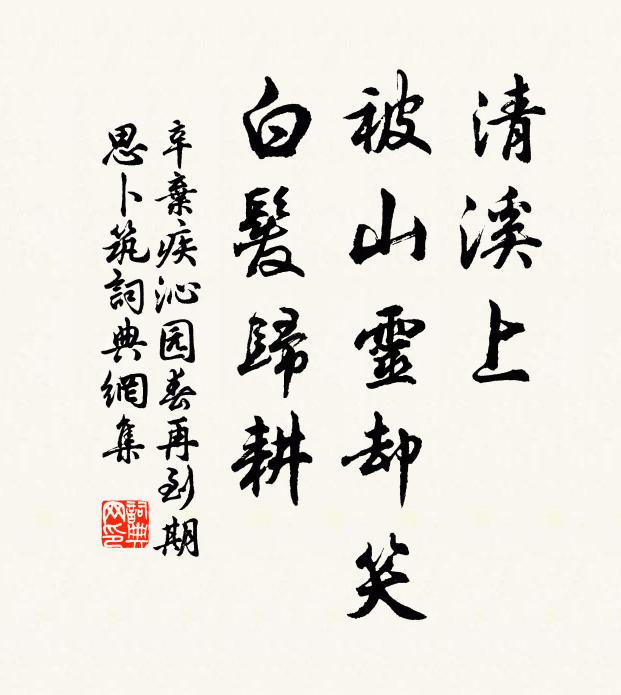 清溪上
被山靈却笑
白髮歸耕
辛棄疾沁园春再到期
思卜筑詞典網集
詞典
网印